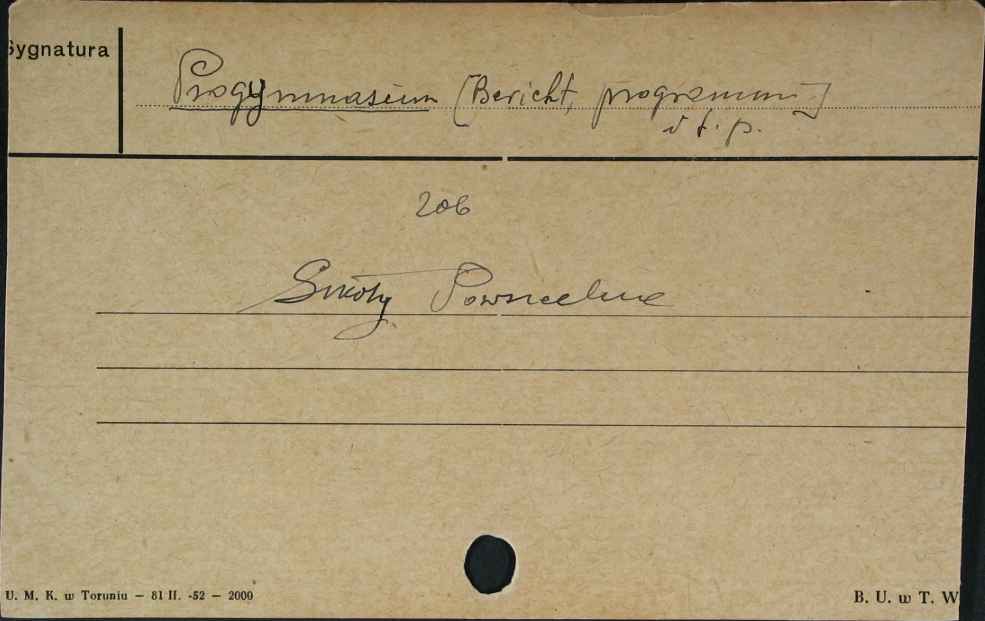 Sygnatura
Progymnasium [Bericht, programm]
i t. p.
206
Szkoły Powszechne
U. M. K. w Toruniu — 81 II. -52 — 2000
B. U. w T. W